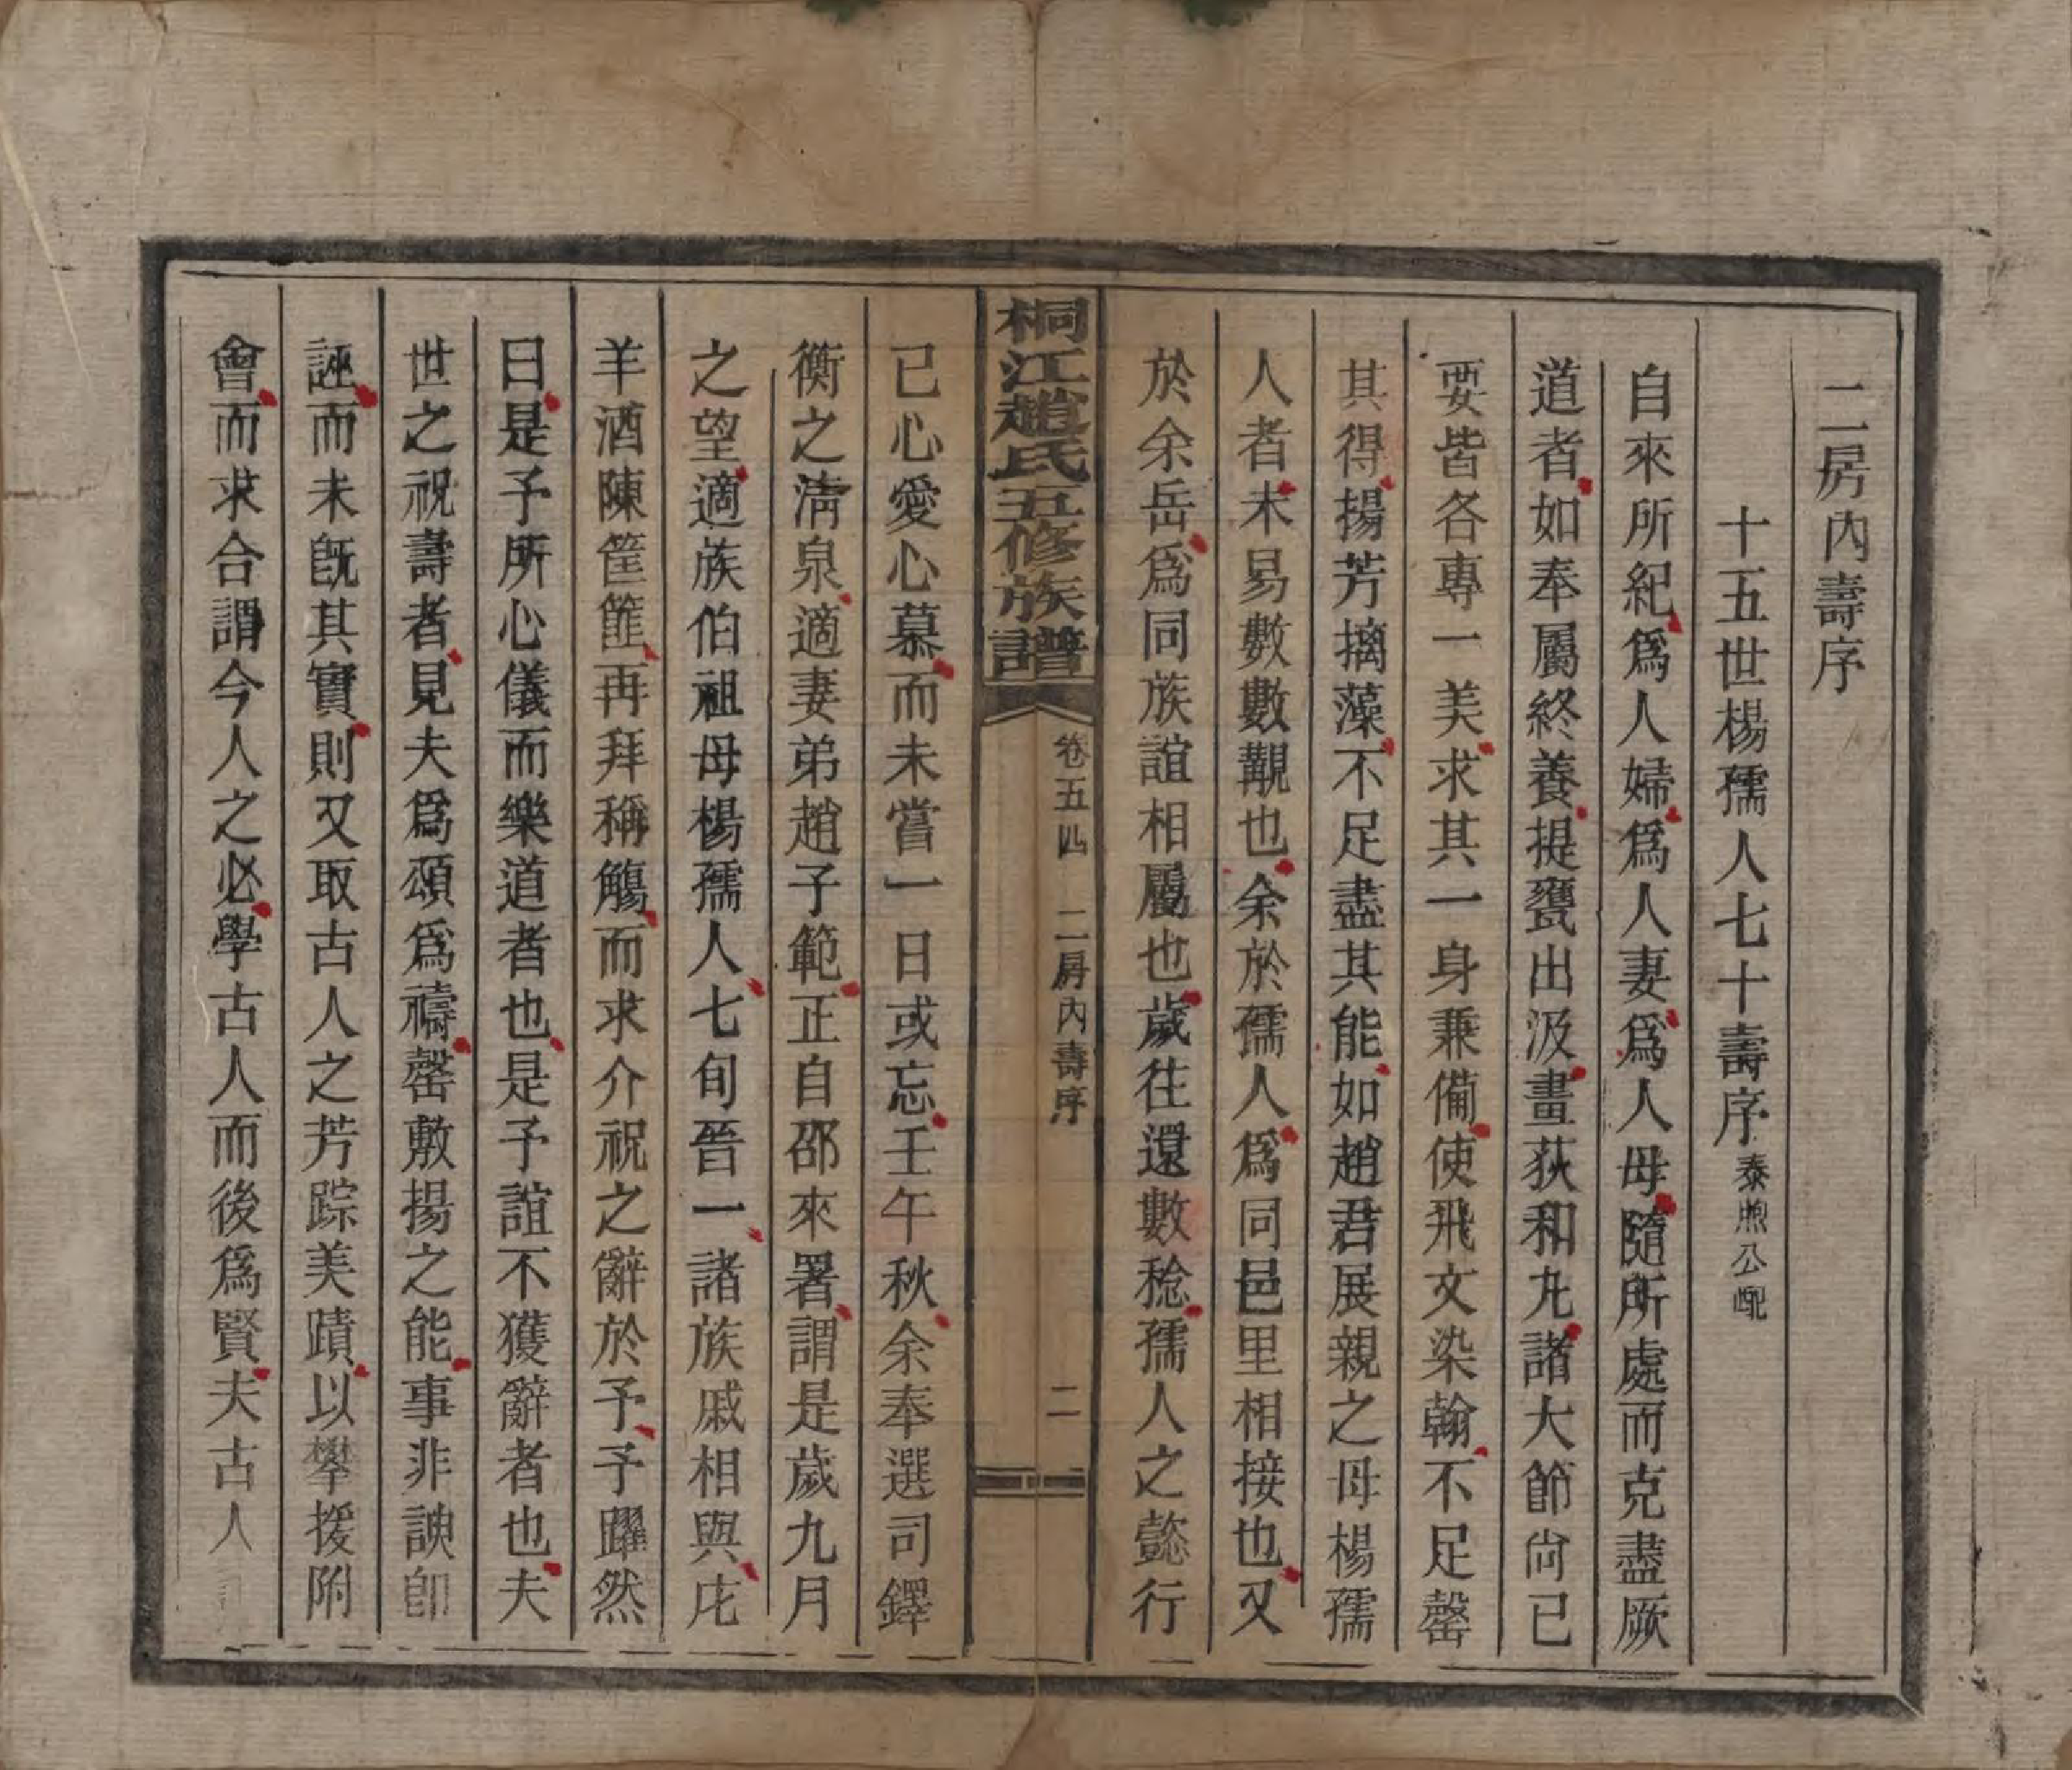 二房內壽序
十五世楊孺人七十壽序泰煦公配
自來所紀爲人婦爲人妻爲人母隨所處而克盡厥
道者如奉屬終養提甕出汲畫荻和丸諸大節尙已
要皆各專一美求其一身兼備使飛文染翰不足罄
其得揚芳摛藻不足盡其能如趙君展親之母楊孺
人者未易數數覯也余於孺人爲同邑里相接也又
於余岳爲同族誼相屬也歲往還數稔孺人之懿行
桐江趙氏五修族譜 卷五四 二房內壽序 二
已心愛心慕而未嘗一日或忘壬午秋余奉選司鐸
衡之淸泉適妻弟趙子範正自邵來署謂是歲九月
之望適族伯祖母楊孺人七旬晉一諸族戚相與庀
羊酒陳筐篚再拜稱觴而求介祝之辭於予予躍然
曰是予所心儀而樂道者也是予誼不獲辭者也夫
世之祝壽者見夫爲頌爲禱罄敷揚之能事非諛卽
誣而未旣其實則又取古人之芳踪美蹟以攀援附
會而求合謂今人之必學古人而後爲賢夫古人